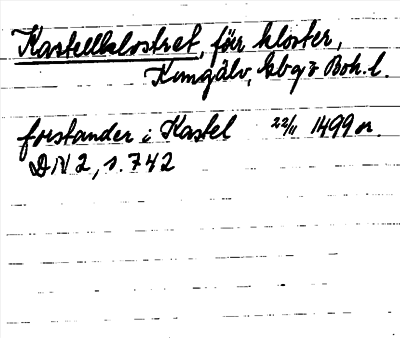 Kastellklostret, förr kloster,
Kungälv, Kbg o Boh. l.
forstander i Kastel 22/11 1499 or.
DN 2, s. 742